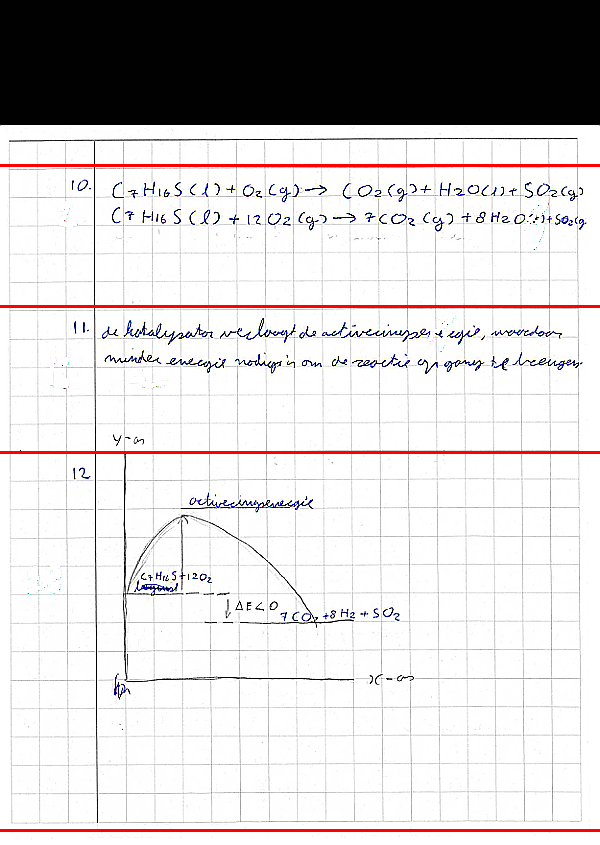 10. C7H16S(l) + O2(g) → CO2(g) + H2O(l) + SO2(g)
C7H16S(l) + 12O2(g) → 7CO2(g) + 8H2O(l) + SO2(g)
11. de katalysator verlaagt de activeringsenergie, waardoor
minder energie nodig is om de reactie op gang te brengen.
y-as
12
activeringsenergie
C7H16S + 12O2
ΔE<0
7CO2 + 8H2 + SO2
x-as